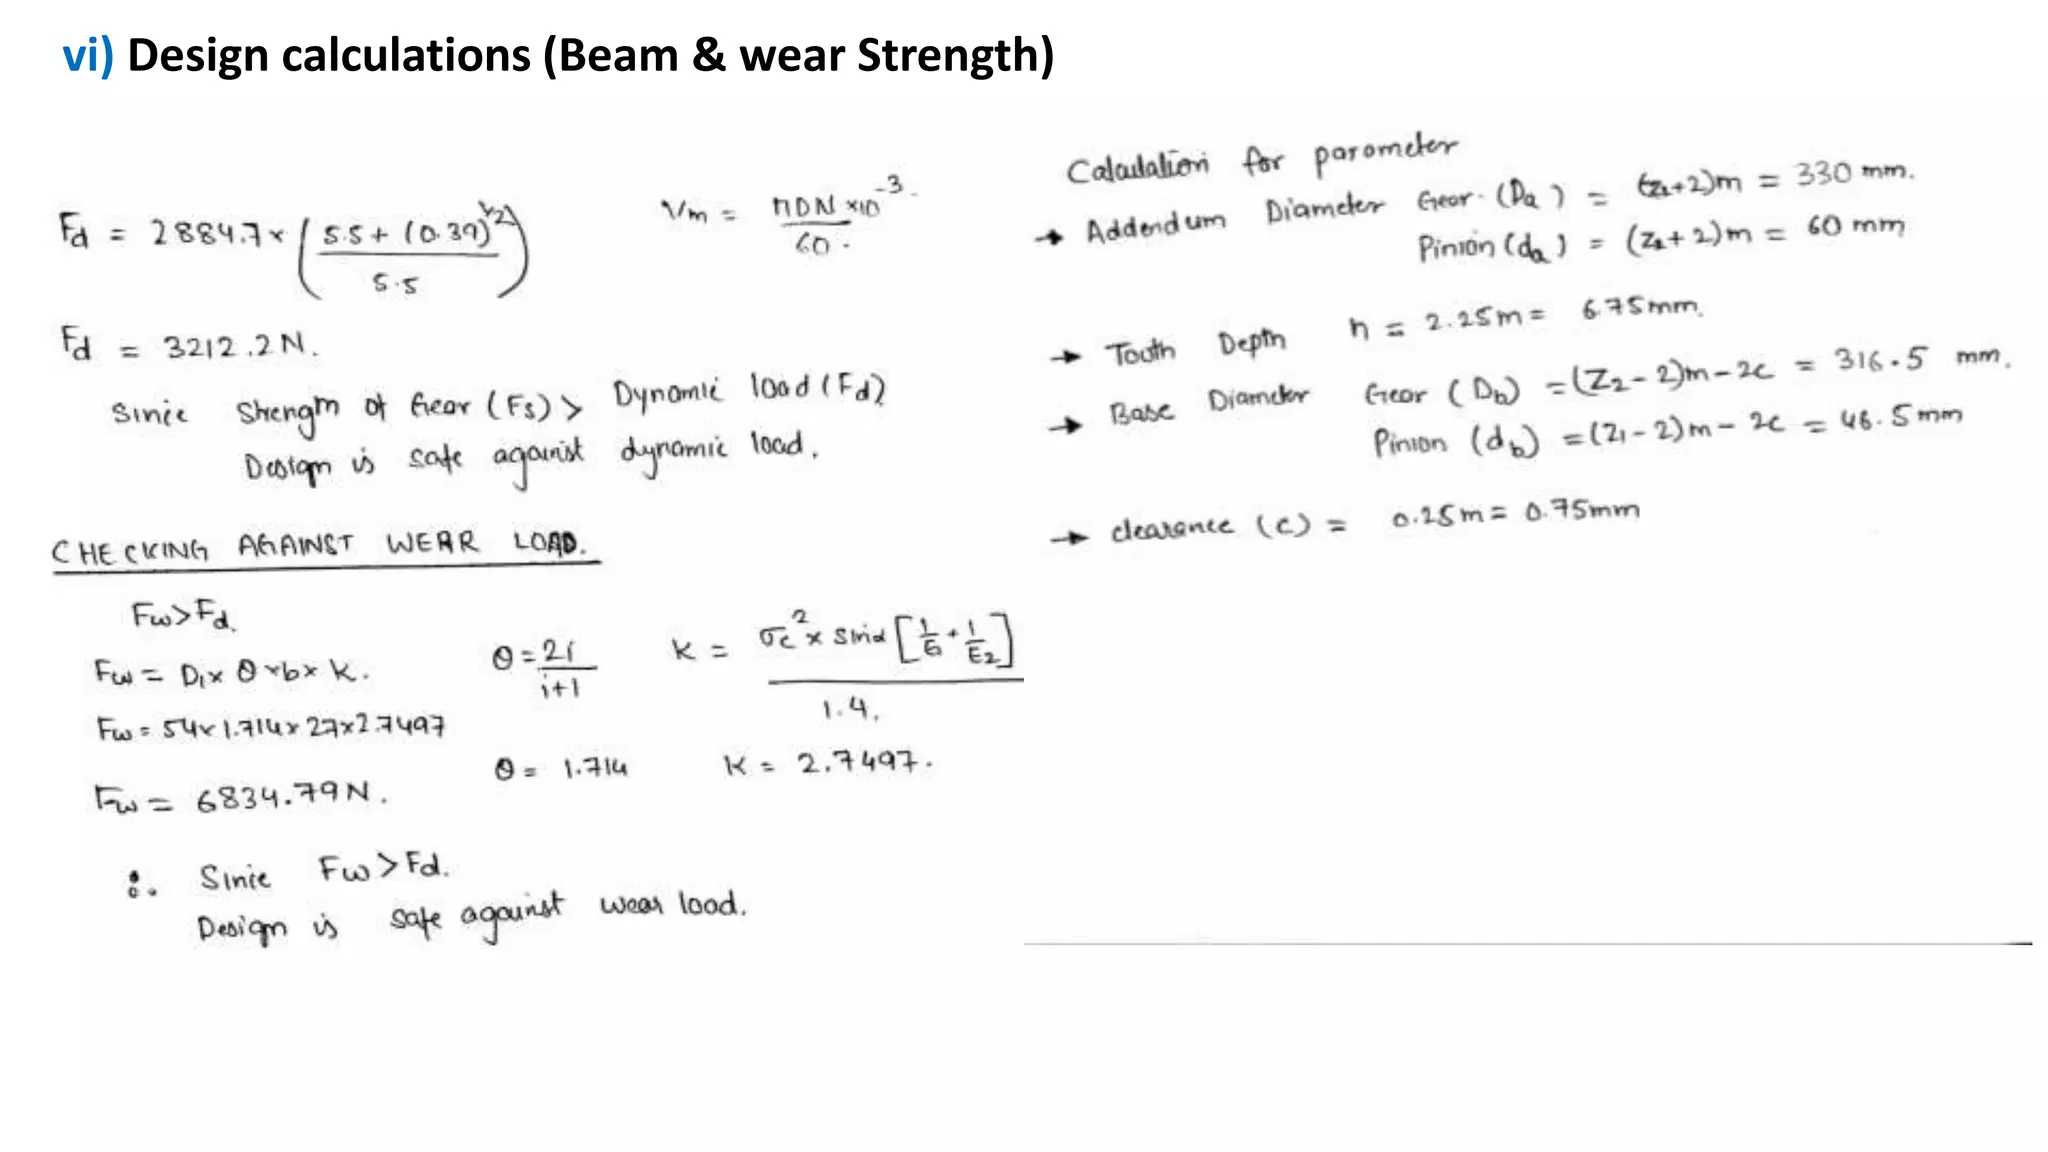 vi) Design calculations (Beam & wear Strength)
Fd = 2884.7 × ( (5.5 + (0.39)^1/2) / 5.5 )
Vm = ΠDN ×10^-3 / 60.
Fd = 3212.2 N.
Since Strength of Gear (Fs) > Dynamic load (Fd)
Design is safe against dynamic load.
CHECKING AGAINST WEAR LOAD.
Fw>Fd.
Fw = D1 × Θ × b × K.
Θ = 2i / i+1
K = σc^2 × sinα [1/E1 + 1/E2] / 1.4.
Fw = 54 × 1.714 × 27 × 2.7497
Θ = 1.714
K = 2.7497.
Fw = 6834.79 N.
∴ Since Fw > Fd.
Design is safe against wear load.
Calculation for parameter
→ Addendum Diameter Gear (Da) = (Z2+2)m = 330 mm.
Pinion (da) = (Z1+2)m = 60 mm
→ Tooth Depth h = 2.25m = 6.75mm.
→ Base Diameter Gear (Db) = (Z2-2)m - 2c = 316.5 mm.
Pinion (db) = (Z1-2)m - 2c = 46.5 mm
→ clearance (c) = 0.25m = 0.75mm